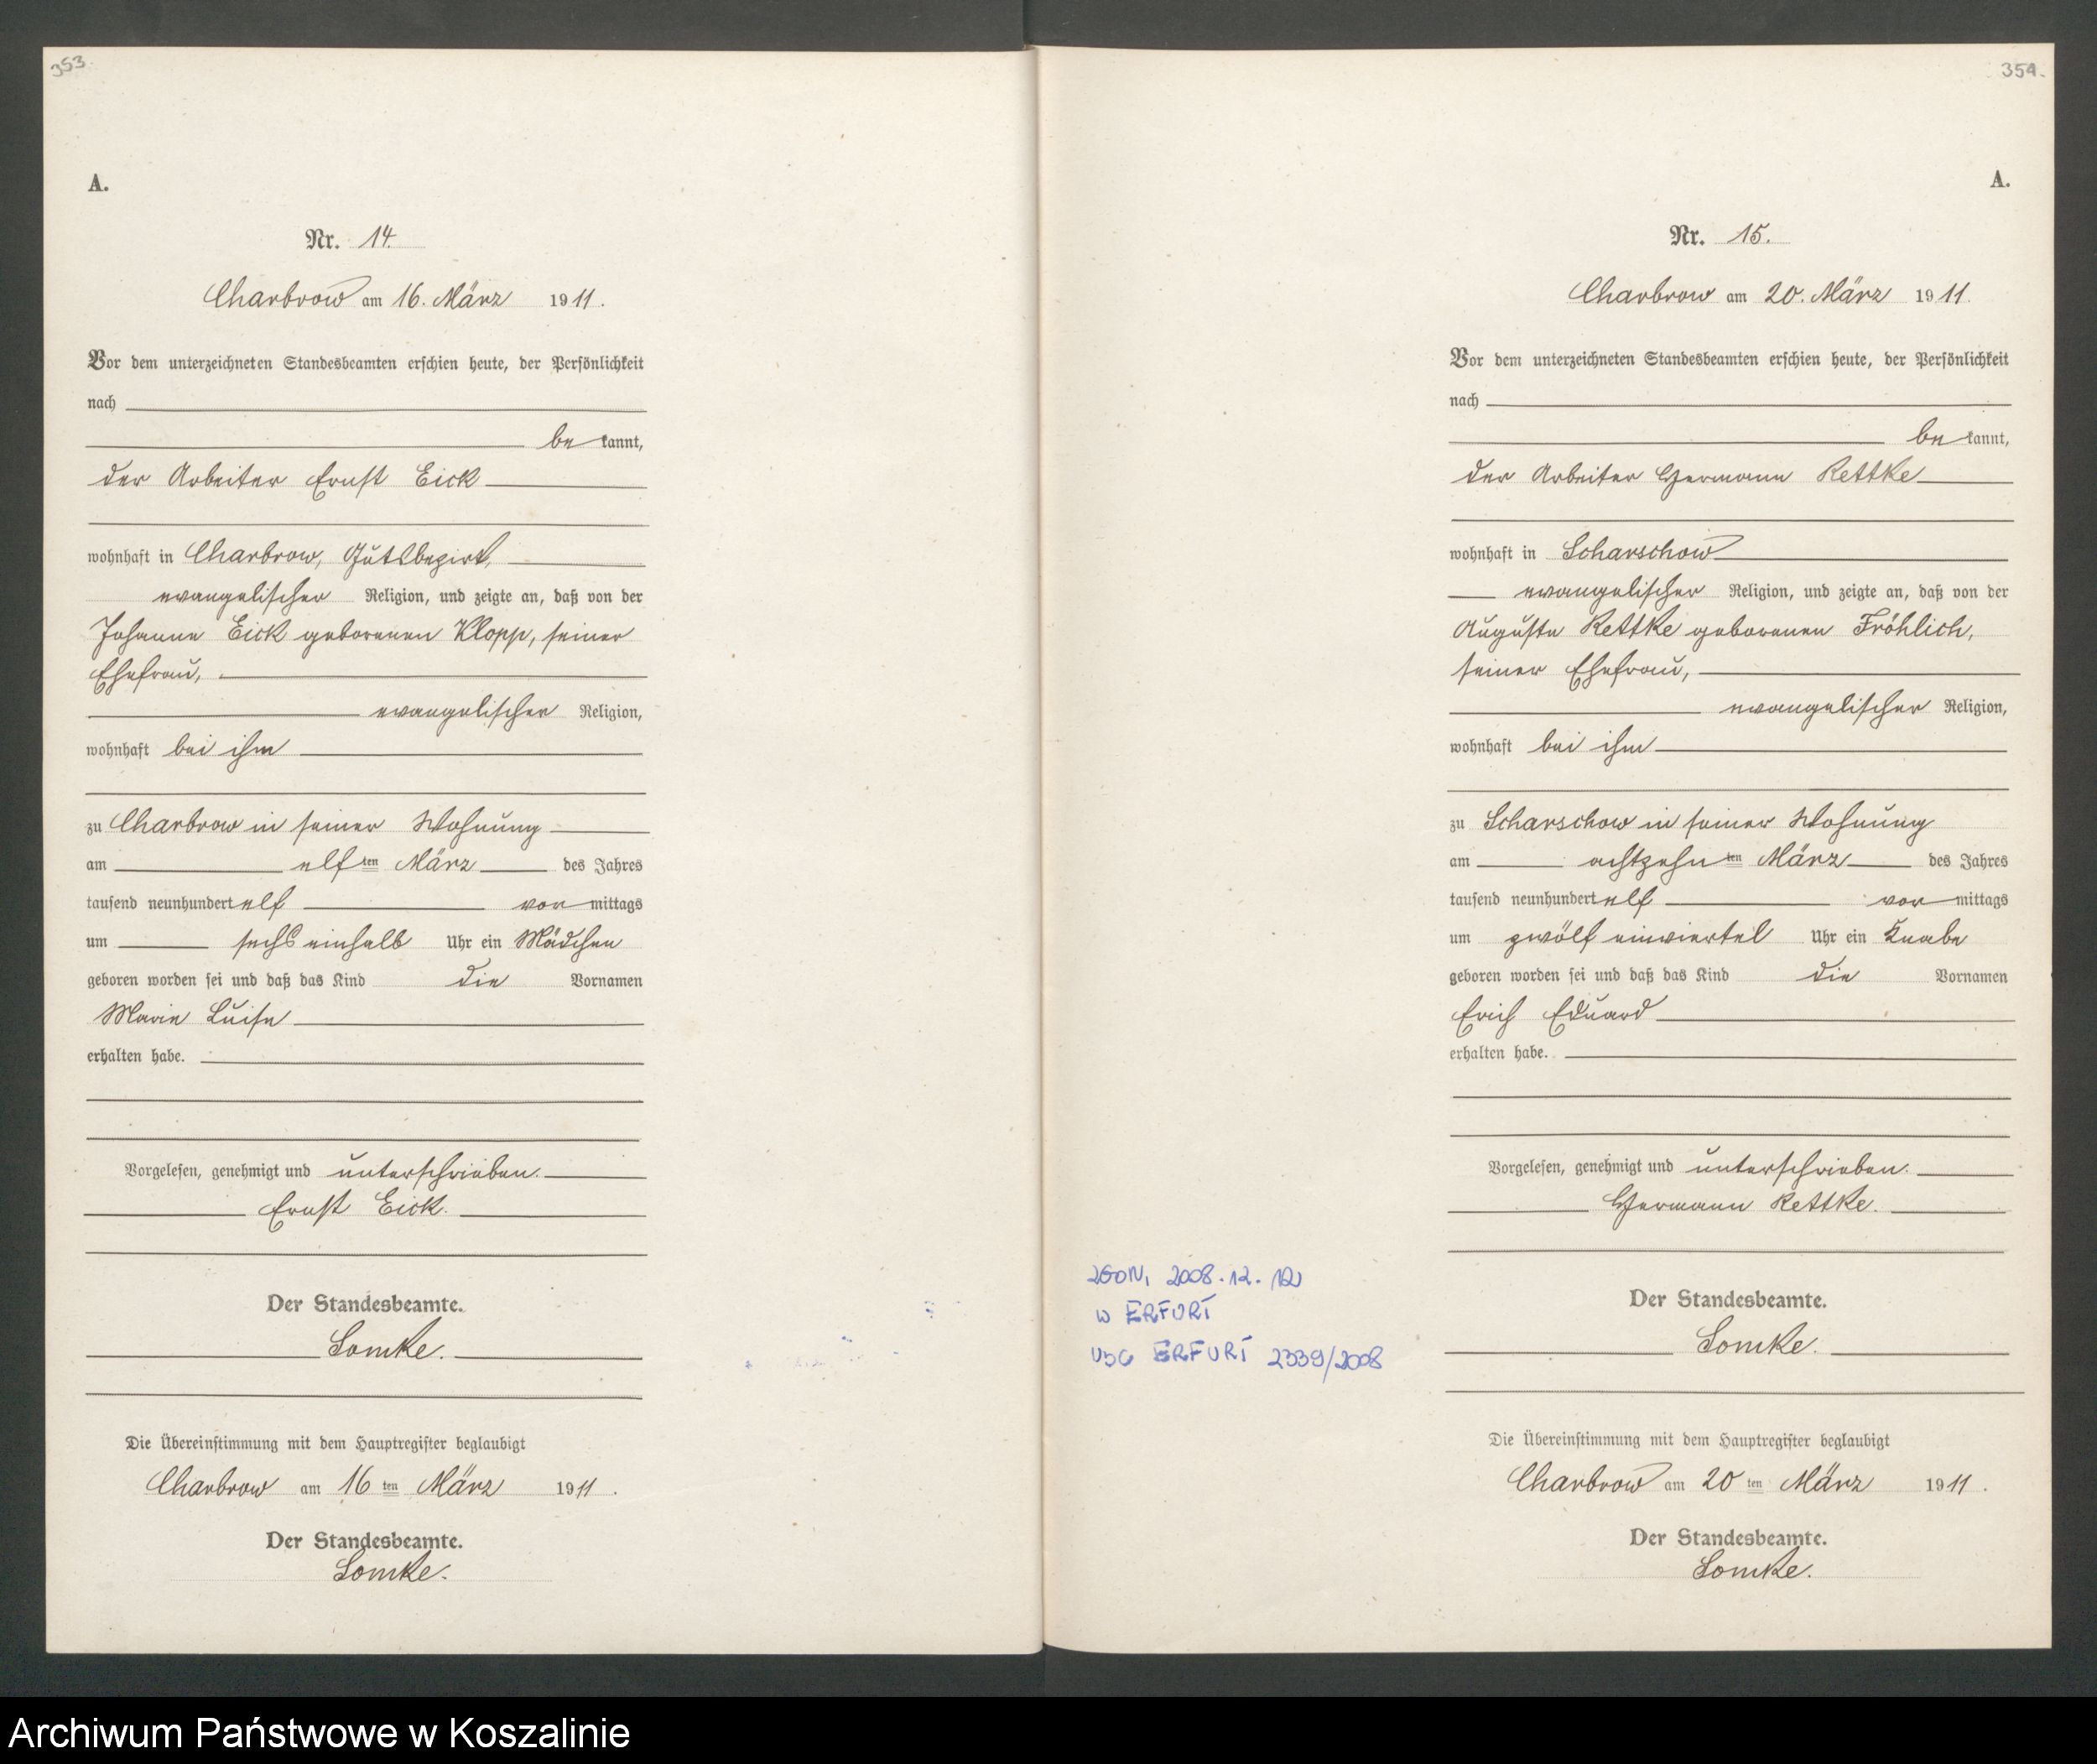 353.
A.
Nr. 14.
Charbrow am 16. März 1911.
Vor dem unterzeichneten Standesbeamten erschien heute, der Persönlichkeit
nach
be kannt,
der Arbeiter Ernst Eick
wohnhaft in Charbrow, Gutsbezirk,
evangelischer Religion, und zeigte an, daß von der
Johanne Eick geborenen Klopp, seiner
Ehefrau,
evangelischer Religion,
wohnhaft bei ihm
zu Charbrow in seiner Wohnung
am elf ten März des Jahres
tausend neunhundert elf vor mittags
um sechs einhalb Uhr ein Mädchen
geboren worden sei und daß das Kind die Vornamen
Marie Luise
erhalten habe.
Vorgelesen, genehmigt und unterschrieben.
Ernst Eick.
Der Standesbeamte.
Lomke.
Die Übereinstimmung mit dem Hauptregister beglaubigt
Charbrow am 16 ten März 1911.
Der Standesbeamte.
Lomke.
354.
A.
Nr. 15.
Charbrow am 20. März 1911.
Vor dem unterzeichneten Standesbeamten erschien heute, der Persönlichkeit
nach
be kannt,
der Arbeiter Hermann Rettke
wohnhaft in Scharschow
evangelischer Religion, und zeigte an, daß von der
Auguste Rettke geborenen Fröhlich,
seiner Ehefrau,
evangelischer Religion,
wohnhaft bei ihm
zu Scharschow in seiner Wohnung
am achtzehn ten März des Jahres
tausend neunhundert elf vor mittags
um zwölf einviertel Uhr ein Knabe
geboren worden sei und daß das Kind die Vornamen
Erich Eduard
erhalten habe.
Vorgelesen, genehmigt und unterschrieben.
Hermann Rettke.
ZGON, 2008.12.12
w ERFURT
USC ERFURT 2339/2008
Der Standesbeamte.
Lomke.
Die Übereinstimmung mit dem Hauptregister beglaubigt
Charbrow am 20 ten März 1911.
Der Standesbeamte.
Lomke.
Archiwum Państwowe w Koszalinie